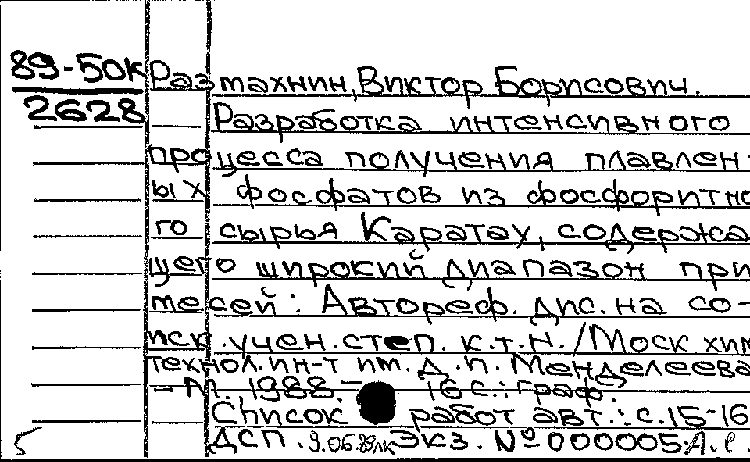 89-50к Размахнин, Виктор Борисович.
2628 Разработка интенсивного
процесса получения плавлен-
ых фосфатов из фосфоритно
го сырья Каратау, содержа
щего широкий диапазон при
месей: Автореф. дис. на со-
иск. учен. степ. к.т.н. /Моск хим
технол. ин-т им. Д. И. Менделеева
- М. 1988. - 16 с.: граф.
Список работ авт.: с. 15-16
5 ДСП. 9.06.89лк Экз. № 000005. А. С.